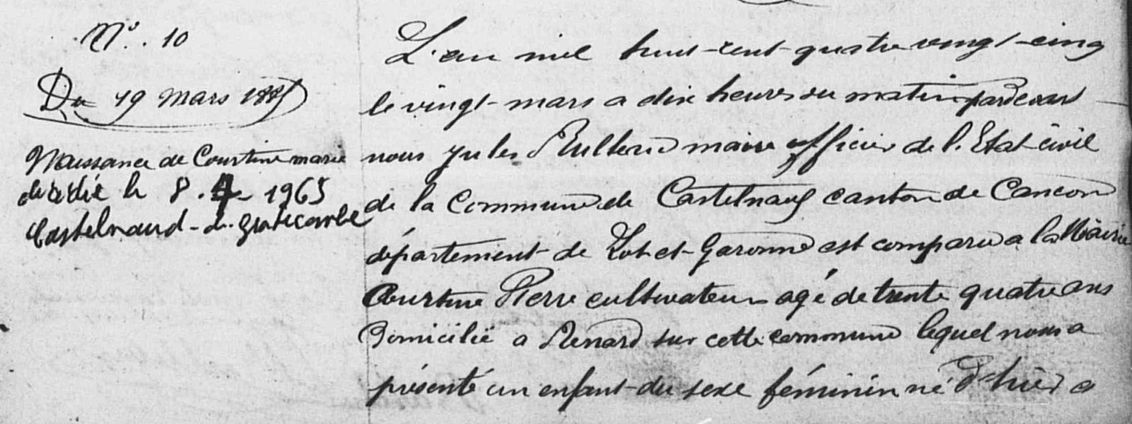 N°. 10
Du 19 mars 1885
Naissance de Courtine marie
décédée le 8. 4 1965
Castelnaud-de-gratecambe
L'an mil huit-cent-quatre vingt-cinq
le vingt-mars a dix heures du matin pardevant
nous Jules maire officier de l'Etat-civil
de la Commune de Castelnaud canton de Cancon
département de Lot-et-Garonne est comparu a la Mairie
Courtine Pierre cultivateur agé de trente quatre ans
domicilié a Renard sur cette commune lequel nous a
présenté un enfant-du sexe féminin né d'hier a